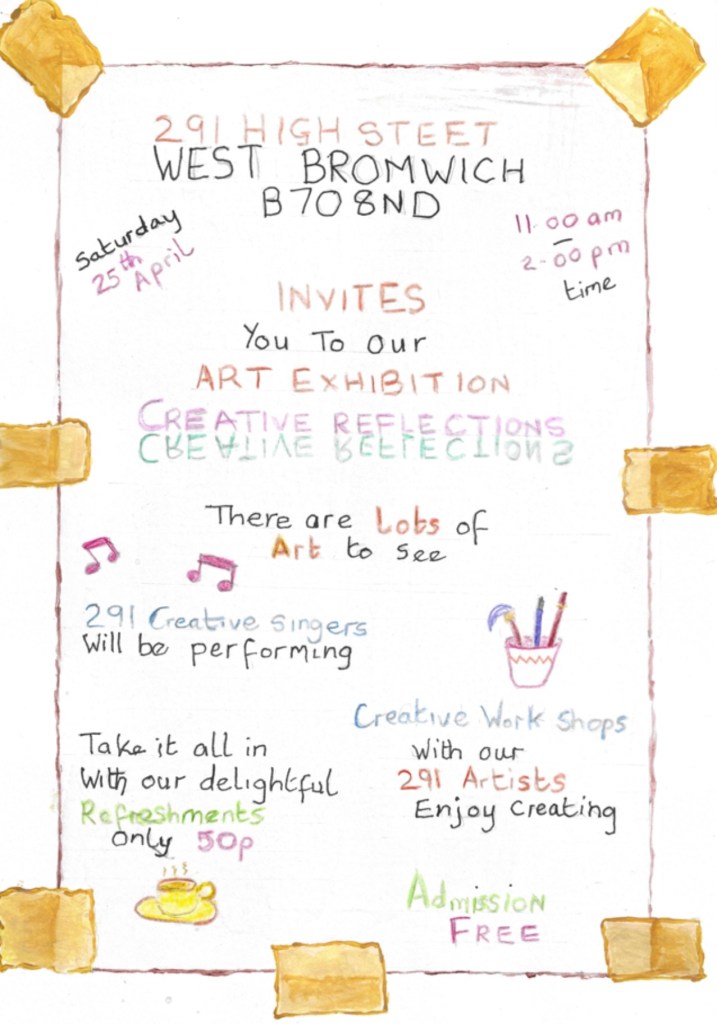 291 HIGH STEET
WEST BROMWICH
B70 8ND
Saturday
25th April
11.00 am
–
2.00 pm
time
INVITES
You To Our
ART EXHIBITION
CREATIVE REFLECTIONS
CREATIVE REFLECTIONS
There are Lots of
Art to See
291 Creative Singers
Will be performing
Creative Work Shops
with our
291 Artists
Enjoy Creating
Take it all in
With our delightful
Refreshments
only 50p
Admission
FREE